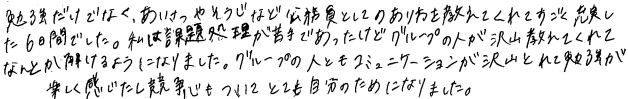 勉強だけでなく、あいさつやそうじなど公務員としてのありかたを教えてくれてすごく充実し
た6日間でした。私は課題処理が苦手であったけどグループの人が沢山教えてくれて
なんとか解けるようになりました。グループの人ともコミュニケーションが沢山とれて勉強が
楽しく感じたし競争心もついてとても自分のためになりました。